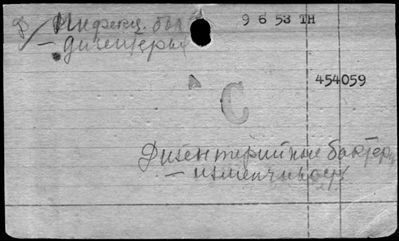 Инфекц. бол
9 6 53 TH
— дизентерия
454059
C
Дизентерийные бактер
— изменчивость